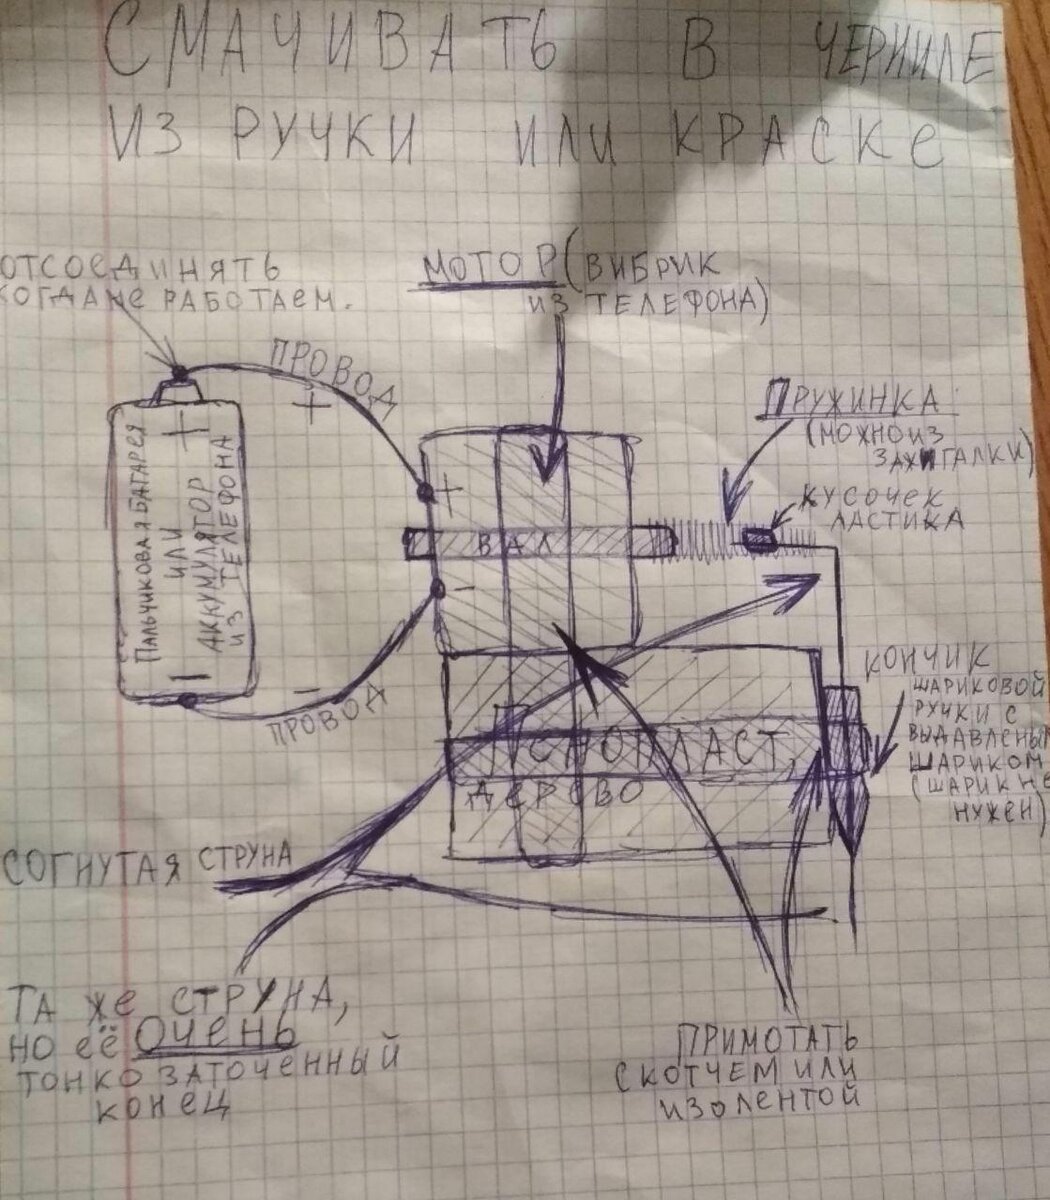 СМАЧИВАТЬ В ЧЕРНИЛЕ
ИЗ РУЧКИ ИЛИ КРАСКЕ
ОТСОЕДИНЯТЬ
КОГДА НЕ РАБОТАЕМ.
МОТОР (ВИБРИК
ИЗ ТЕЛЕФОНА)
ПРОВОД
+
ПРУЖИНКА
(МОЖНО ИЗ
ЗАЖИГАЛКИ)
КУСОЧЕК
ЛАСТИКА
+
ПАЛЬЧИКОВАЯ БАТАРЕЯ
ИЛИ
АККУМУЛЯТОР
ИЗ ТЕЛЕФОНА
-
+
ВАЛ
-
-
ПРОВОД
КОНЧИК
ШАРИКОВОЙ
РУЧКИ С
ВЫДАВЛЕНЫМ
ШАРИКОМ
(ШАРИК НЕ
НУЖЕН)
ПЕНОПЛАСТ,
ДЕРЕВО
СОГНУТАЯ СТРУНА
ТА ЖЕ СТРУНА,
НО ЕЁ ОЧЕНЬ
ТОНКО ЗАТОЧЕННЫЙ
КОНЕЦ
ПРИМОТАТЬ
СКОТЧЕМ ИЛИ
ИЗОЛЕНТОЙ